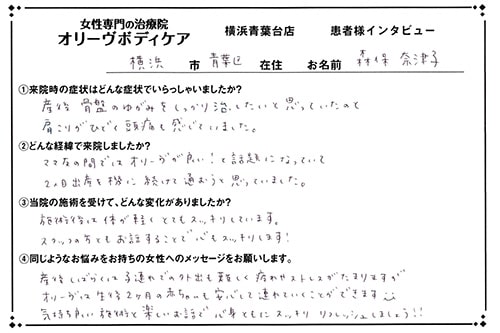 女性専門の治療院
オリーヴボディケア 横浜青葉台店 患者様インタビュー
横浜 市 青葉区 在住 お名前 森保 奈津子
①来院時の症状はどんな症状でいらっしゃいましたか?
産後 骨盤のゆがみをしっかり治したいと思っていたのと
肩こりがひどく頭痛も感じていました。
②どんな経緯で来院しましたか?
ママ友の間ではオリーヴが良い!と話題になっていて
2人目出産を機に 続けて通おうと思っていました。
③当院の施術を受けて、どんな変化がありましたか?
施術後は体が軽くとてもスッキリしています。
スタッフの方ともお話することで心もスッキリします!
④同じようなお悩みをお持ちの女性へのメッセージをお願いします。
産後しばらくは子連れでの外出も難しく 疲れやストレスがたまりますが
オリーヴは生後2ヶ月の赤ちゃんも安心して連れていくことができます
気持ち良い施術と楽しいお話で心身ともにスッキリ リフレッシュしましょう!!